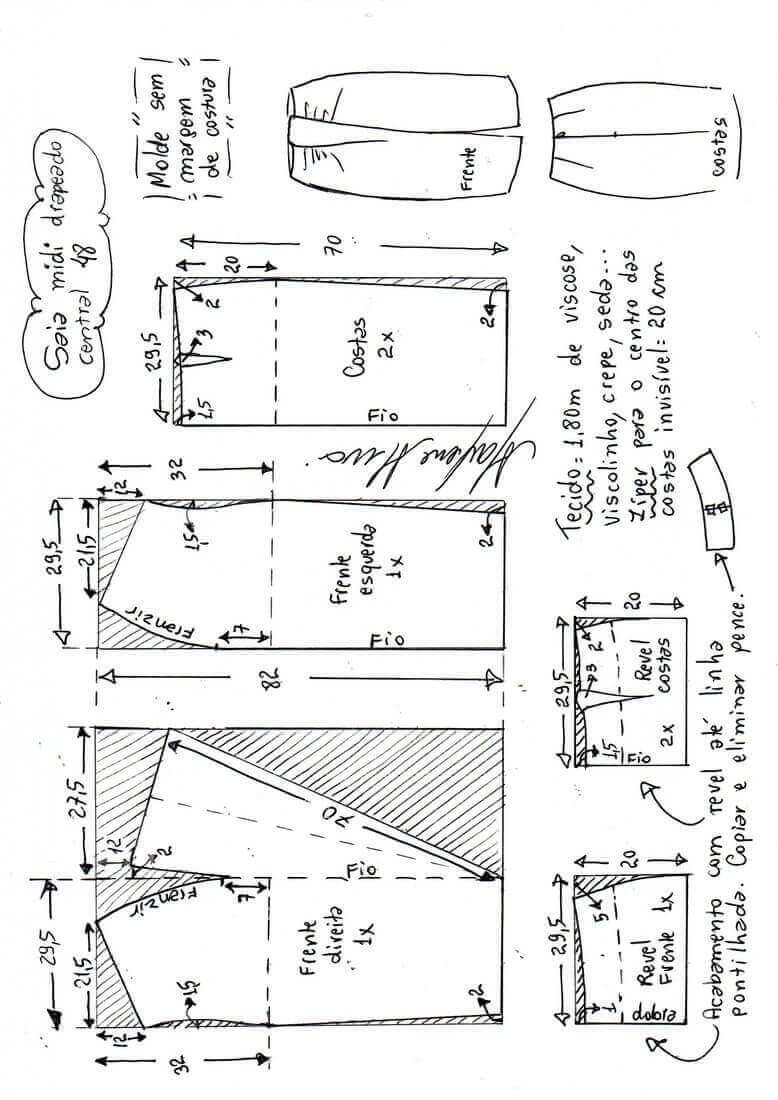 Saia midi drapeado
central 48
Molde sem
margem
de costura
Frente
costas
32
12
29,5
21,5
Franzir
7
1,5
2
Frente
direita
1x
27,5
12
2
Fio
70
82
29,5
21,5
12
32
Franzir
7
1,5
2
Frente
esquerda
1x
Fio
29,5
1,5
3
2
20
70
2
Costas
2x
Fio
Tecido = 1,80m de viscose,
viscolinho, crepe, seda...
Zíper para o centro das
costas invisível = 20 cm
29,5
1
5
20
Revel
Frente 1x
dobra
29,5
1,5
3
2
20
Revel
costas
2x
Fio
Acabamento com revel até linha
pontilhada. Copiar e eliminar pence.